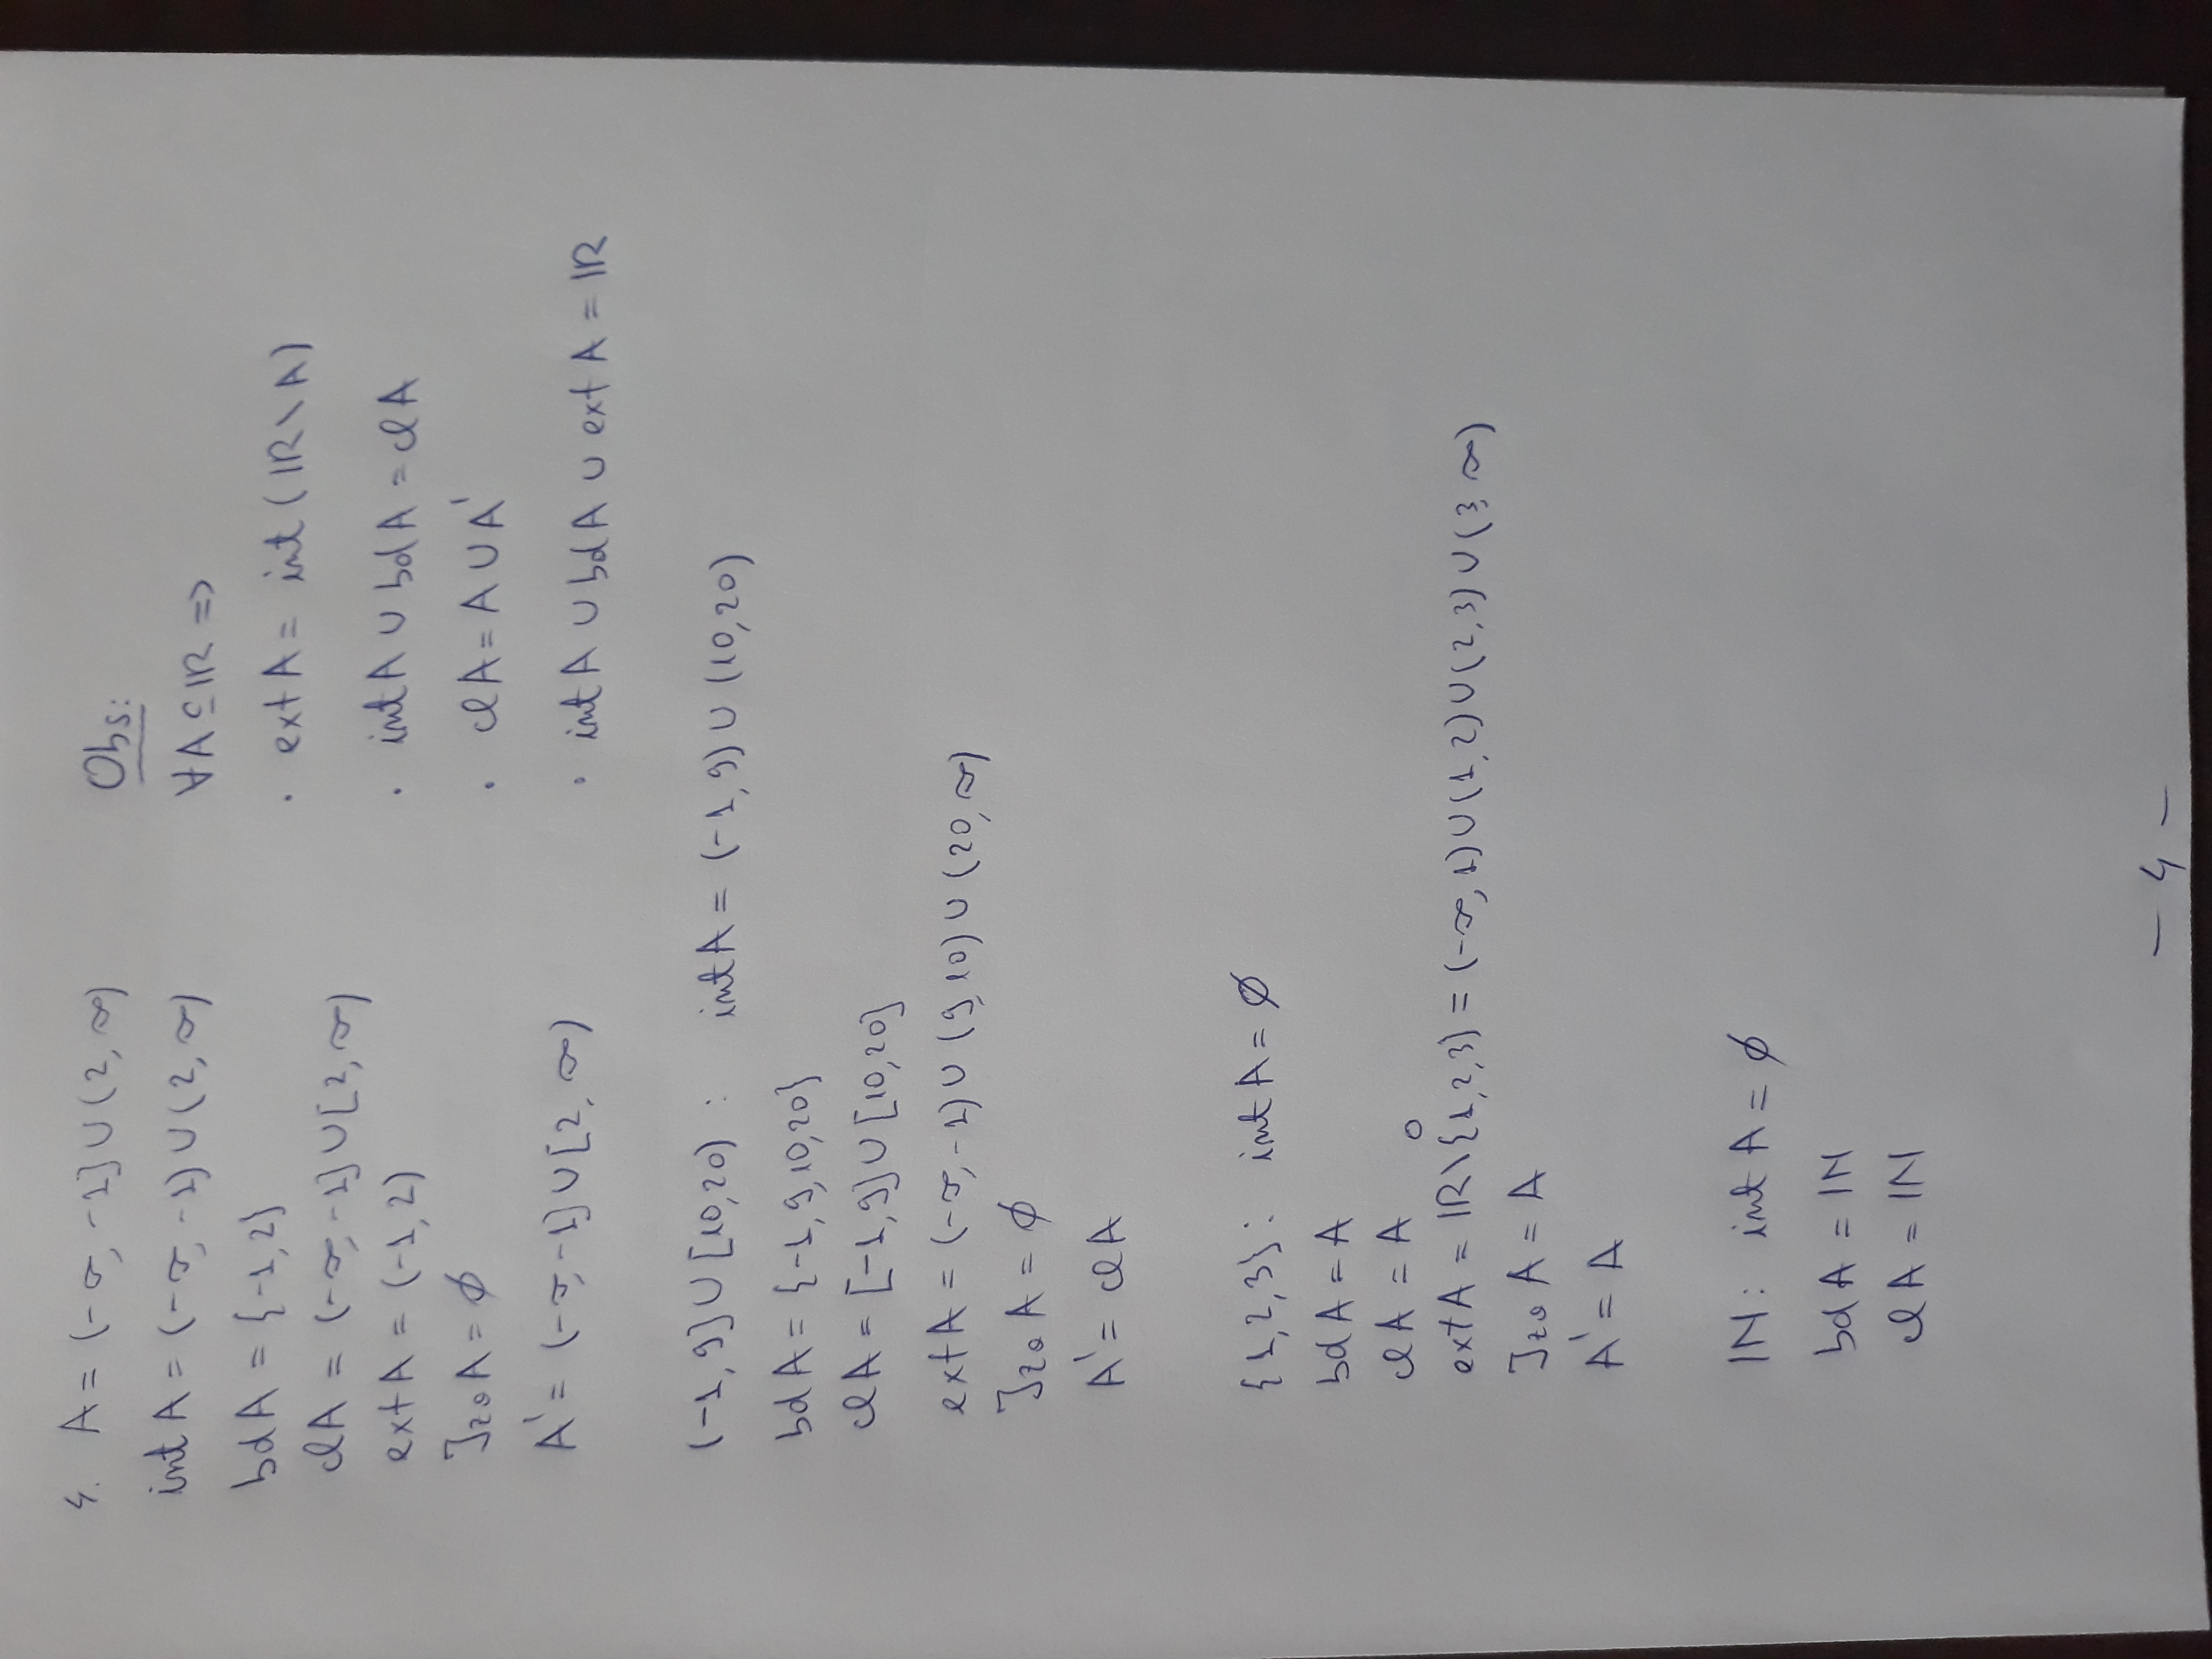 4. A = (-∞, -1] ∪ (2, ∞)
int A = (-∞, -1) ∪ (2, ∞)
bd A = {-1, 2}
cl A = (-∞, -1] ∪ [2, ∞)
ext A = (-1, 2)
Izo A = ∅
A' = (-∞, -1] ∪ [2, ∞)
Obs:
∀A ⊆ ℝ =>
· ext A = int (ℝ \ A)
· int A ∪ bd A = cl A
· cl A = A ∪ A'
· int A ∪ bd A ∪ ext A = ℝ
(-1, 9] ∪ [10, 20) : int A = (-1, 9) ∪ (10, 20)
bd A = {-1, 9, 10, 20}
cl A = [-1, 9] ∪ [10, 20]
ext A = (-∞, -1) ∪ (9, 10) ∪ (20, ∞)
Izo A = ∅
A' = cl A
{1, 2, 3} : int A = ∅
bd A = A
cl A = A
o
ext A = ℝ \ {1, 2, 3} = (-∞, 1) ∪ (1, 2) ∪ (2, 3) ∪ (3, ∞)
Izo A = A
A' = A
ℕ : int A = ∅
bd A = ℕ
cl A = ℕ
- 4 -